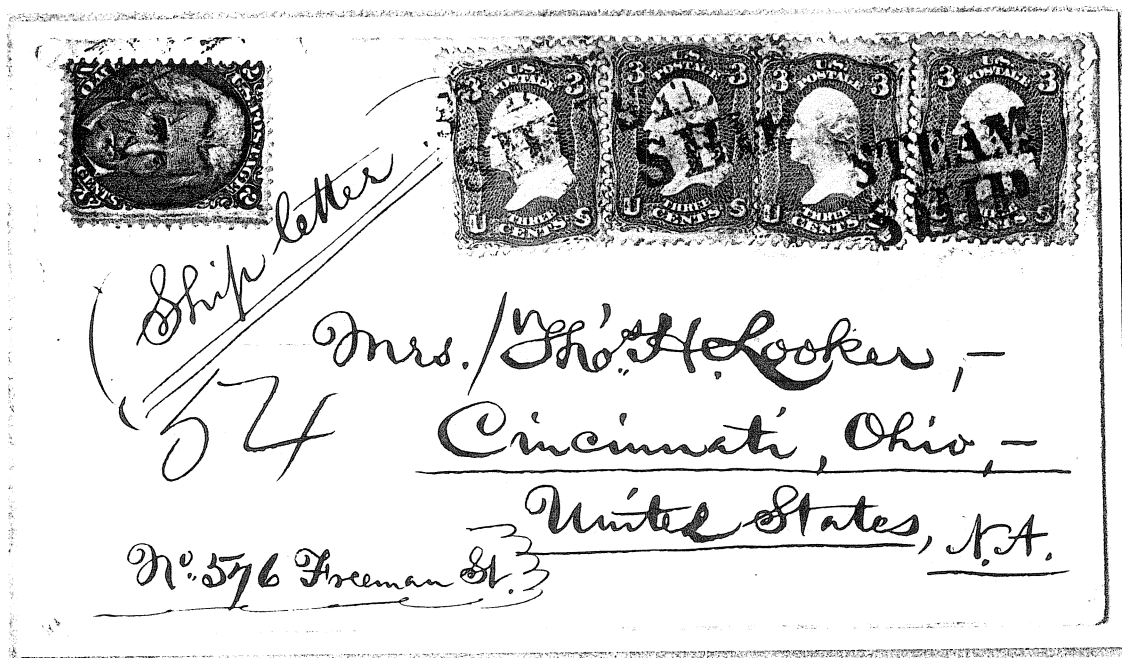 U.S. POSTAGE 3 3 THREE CENTS U S
U.S. POSTAGE 3 3 THREE CENTS U S
U.S. POSTAGE 3 3 THREE CENTS U S
U.S. POSTAGE 3 3 THREE CENTS U S
STEAM
SHIP
Ship letter
Mrs. Thos. H. Looker, –
54
Cincinnati, Ohio, –
United States, N.A.
No. 576 Freeman St.